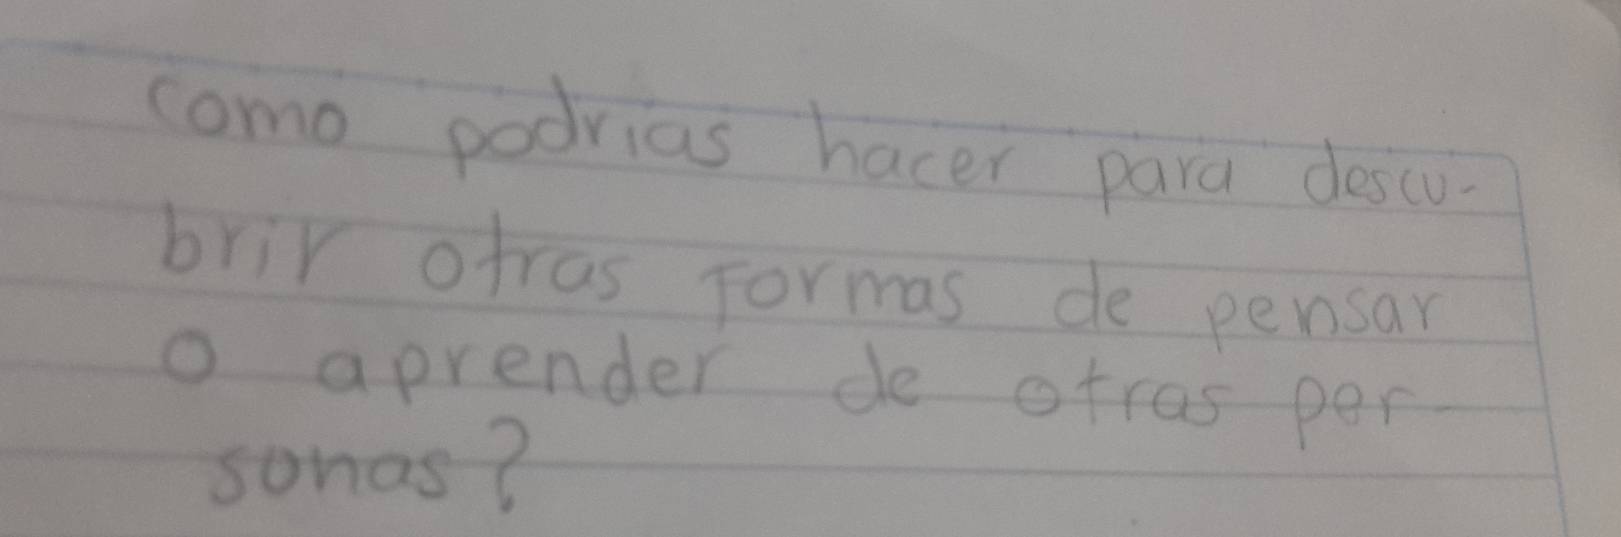 como podrias hacer para descu-
brir otras formas de pensar
o aprender de otras per-
sonas?